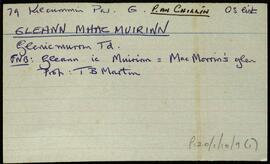 79 Kilcummin Par. G. P. an Chillín OS list
GLEANN MHAC MUIRINN
Glenicmurrin Td.
(NB: Gleann ic Muirinn = Mac Morrin's glen
Prof. T B Martin